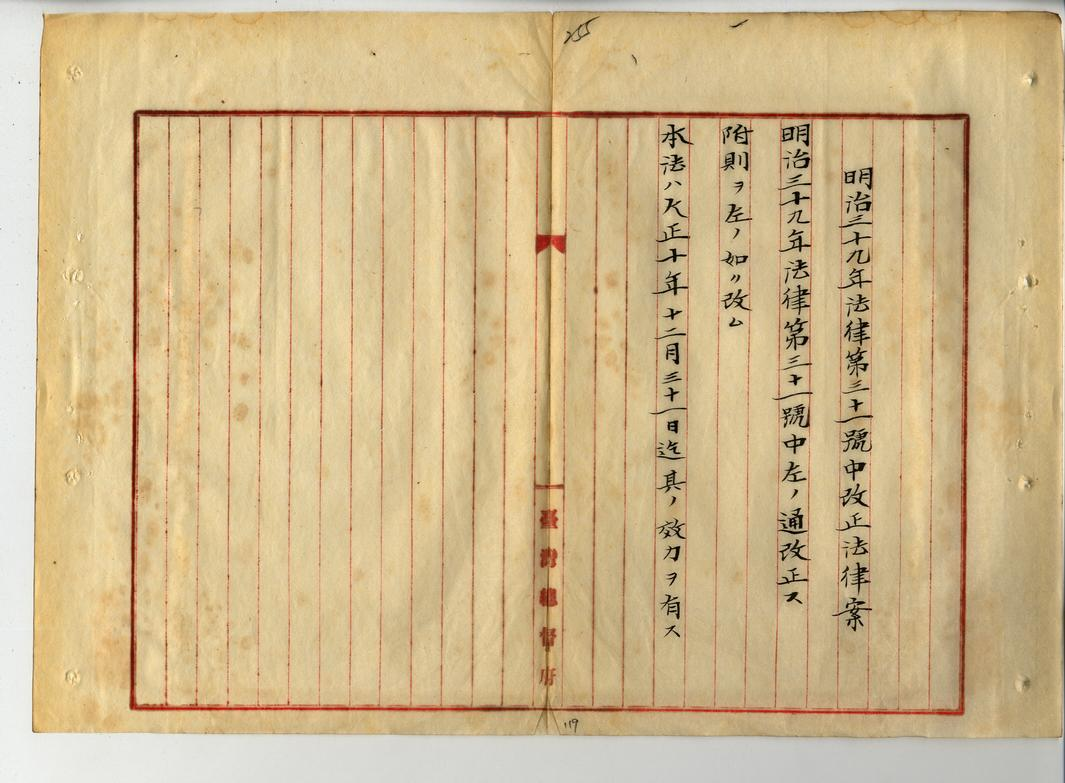 255
明治三十九年法律第三十一號中改正法律案
明治三十九年法律第三十一號中左ノ通改正ス
附則ヲ左ノ如ク改ム
本法ハ大正十年十二月三十一日迄其ノ效力ヲ有ス
臺灣總督府
119